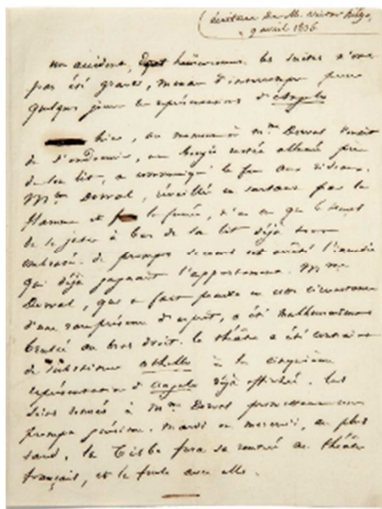 écriture de M. Victor Hugo,
2 avril 1836
un accident, dont heureusement les suites n'ont
pas été graves, menace d'interrompre pour
quelques jours les représentations d'Angelo
hier, au moment où Mme Dorval venait
de s'endormir, une bougie restée allumée près
de son lit, a communiqué le feu aux rideaux.
Mme Dorval, réveillée en sursaut par la
flamme et la fumée, n'a eu que le temps
de se jeter à bas de son lit déjà tout
embrasé. de prompts secours ont arrêté l'incendie
qui déjà gagnait l'appartement. Mme
Dorval, qui a fait preuve en cette circonstance
d'une rare présence d'esprit, a été malheureusement
brulée au bras droit. le théâtre a été contraint
de substituer othello à la cinquième
représentation d'angelo déjà affichée. les
soins donnés à Mme Dorval promettent une
prompte guérison. mardi ou mercredi, au plus
tard, la Tisbe fera sa rentrée au théâtre
français, et la foule avec elle.